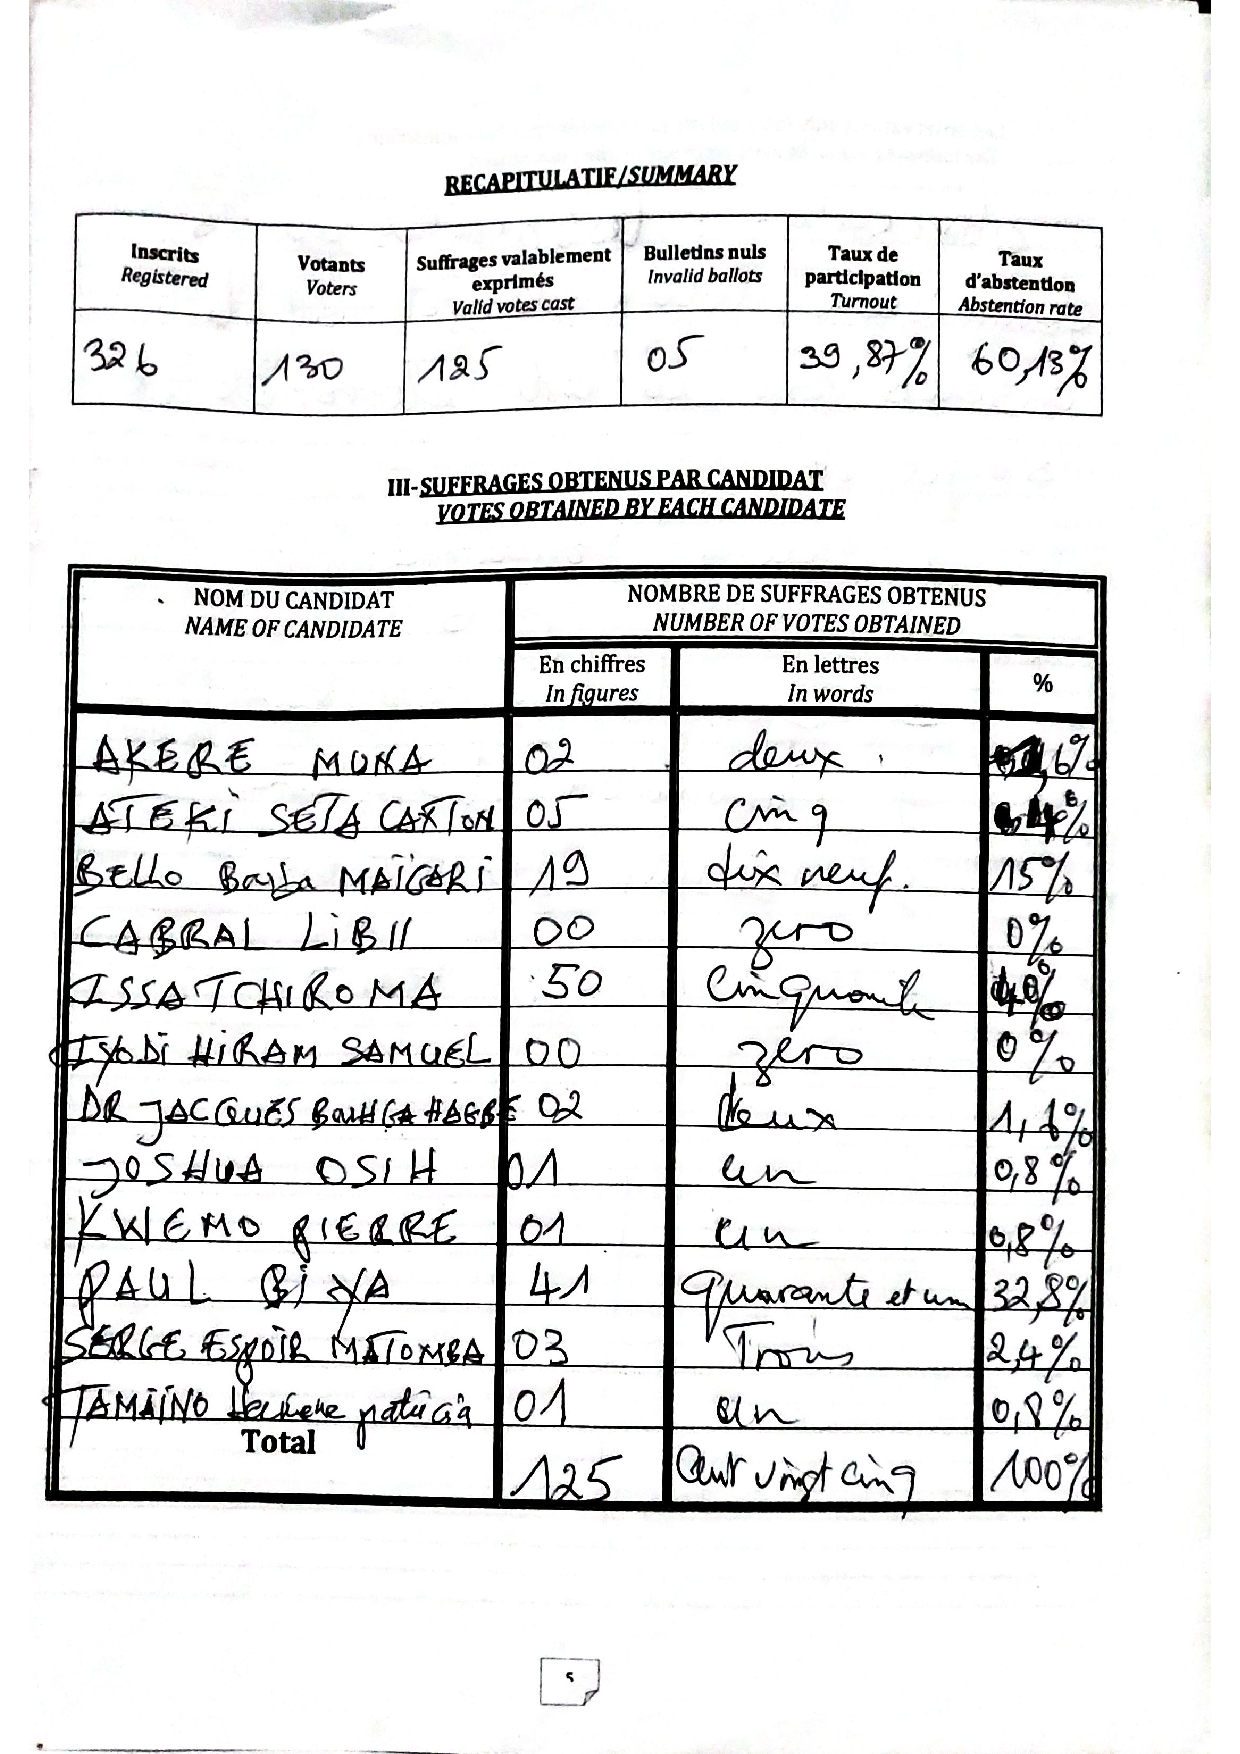 RECAPITULATIF/SUMMARY
Inscrits Registered
Votants Voters
Suffrages valablement exprimés Valid votes cast
Bulletins nuls Invalid ballots
Taux de participation Turnout
Taux d'abstention Abstention rate
326 130 125 05 39,87% 60,13%
III-SUFFRAGES OBTENUS PAR CANDIDAT
VOTES OBTAINED BY EACH CANDIDATE
NOM DU CANDIDAT
NAME OF CANDIDATE
NOMBRE DE SUFFRAGES OBTENUS
NUMBER OF VOTES OBTAINED
En chiffres In figures
En lettres In words
%
AKERE MUNA 02 deux 1,6%
ATEKI SETA CAXTON 05 cinq
Bello Bouba MAÏGARI 19 dix neuf. 15%
CABRAL LIBII 00 zero 0%
ISSA TCHIROMA 50 Cinquante 40%
IYODI HIRAM SAMUEL 00 zero 0%
DR JACQUES BOUHGA HAGBE 02 deux 1,6%
JOSHUA OSIH 01 un 0,8%
KWEMO PIERRE 01 un 0,8%
PAUL BIYA 41 quarante et un 32,8%
SERGE ESPOIR MATOMBA 03 Trois 2,4%
TAMAÏNO patricia 01 un 0,8%
Total 125 Cent vingt cinq 100%
5